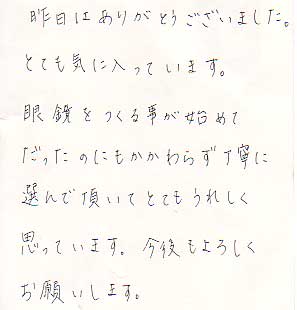 昨日はありがとうございました。
とても気に入っています。
眼鏡をつくる事が始めて
だったのにもかかわらず丁寧に
選んで頂いてとてもうれしく
思っています。今後もよろしく
お願いします。